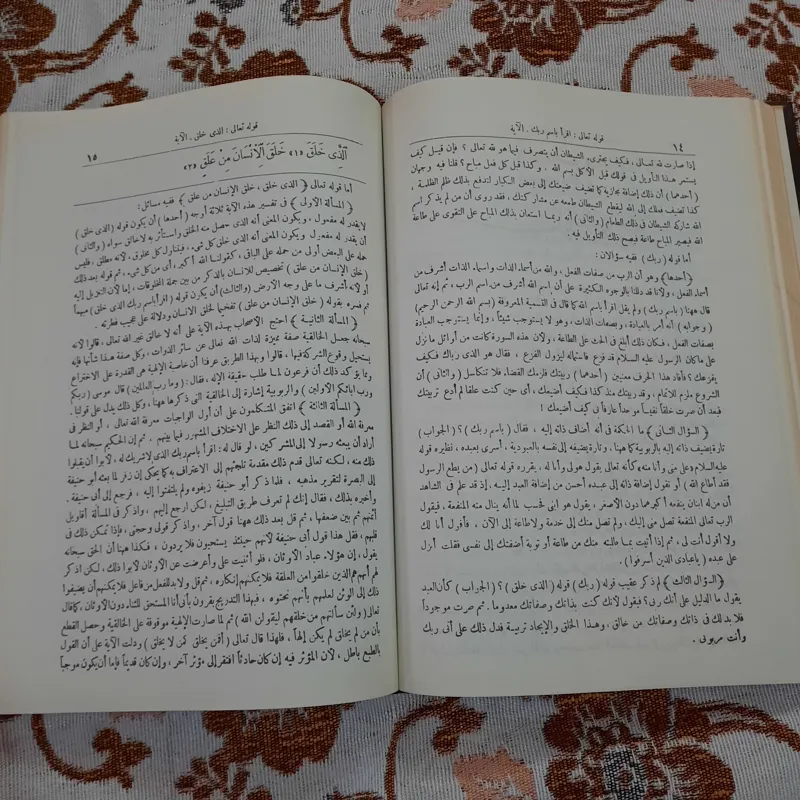 ١٤ قوله تعالى : اقرأ باسم ربك . الآية
إذا صارت لله تعالى ، فكيف يجترىء الشيطان أن يتصرف فيما هو لله تعالى ؟ فإن قيل كيف
يستمر هذا التأويل فى قولك قبل الأكل بسم الله ، وكذا قبل كل فعل مباح ؟ قلنا فيه وجهان
(أحدهما) أن ذلك إضافة مجازية كما تضيف ضيعتك إلى بعض الكبار لتدفع بذلك ظلم الظلمة ،
كذا تضيف فعلك إلى الله ليقطع الشيطان طمعه عن مشاركتك ، فقد روى أن من لم يذكر اسم
الله شاركه الشيطان فى ذلك الطعام (والثانى) أنه ربما استعان بذلك المباح على التقوى على طاعة
الله فيصير المباح طاعة فيصح ذلك التأويل فيه .
أما قوله (ربك) ففيه سؤالان :
(أحدهما) وهو أن الرب من صفات الفعل ، والله من أسماء الذات وأسماء الذات أشرف من
أسماء الفعل ، ولأنا قد دللنا بالوجوه الكثيرة على أن اسم الله أشرف من اسم الرب ، ثم إنه تعالى
قال ههنا (باسم ربك) ولم يقل اقرأ باسم الله كما قال فى التسمية المعروفة (بسم الله الرحمن الرحيم)
(وجوابه) أنه أمر بالعبادة ، وبصفات الذات ، وهو لا يستوجب شيئاً ، وإنما يستوجب العبادة
بصفات الفعل ، فكان ذلك أبلغ فى الحث على الطاعة ، ولأن هذه السورة كانت من أوائل ما نزل
على ما كان الرسول عليه السلام قد فزع فاستماله ليزول الفزع ، فقال هو الذى رباك فكيف
يفزعك ؟ فأفاد هذا الحرف معنيين (أحدهما) ربيتك فلزمك القضاء فلا تتكاسل (والثانى) أن
الشروع ملزم للاتمام ، وقد ربيتك منذ كذا فكيف أضيعك ، أى حين كنت علقا لم أدع تربيتك
فبعد أن صرت خلقاً نفيساً موحداً عارفاً بى كيف أضيعك !
﴿السؤال الثانى﴾ ما الحكمة فى أنه أضاف ذاته إليه ، فقال (باسم ربك) ؟ (الجواب)
تارة يضيف ذاته إليه بالربوبية كما ههنا ، وتارة يضيفه إلى نفسه بالعبودية ، أسرى بعبده ، نظيره قوله
عليه السلام «على منى وأنا منه» كأنه تعالى يقول هو لى وأنا له ، يقرره قوله تعالى (من يطع الرسول
فقد أطاع الله) أو نقول إضافة ذاته إلى عبده أحسن من إضافة العبد إليه . إذ قد علم فى الشاهد
أن من له ابنان ينفعه أكبرهما دون الأصغر ، يقول هو ابنى فحسب لما أنه ينال منه المنفعة ، فيقول
الرب تعالى المنفعة تصل منى إليك ، ولم تصل منك إلى خدمة ولا طاعة إلى الآن ، فأقول أنا لك
ولا أقول أنت لى ، ثم إذا أتيت بما طلبته منك من طاعة أو توبة أضفتك إلى نفسى فقلت أنزل
على عبده (ياعبادى الذين أسرفوا) .
﴿السؤال الثالث﴾ لم ذكر عقيب قوله (ربك) قوله (الذى خلق) ؟ (الجواب) كأن العبد
يقول ما الدليل على أنك ربى؟ فيقول لأنك كنت بذاتك وصفاتك معدوما . ثم صرت موجوداً
فلا بد لك فى ذاتك وصفاتك من خالق . وهذا الخلق والإيجاد تربية فدل ذلك على أنى ربك
وأنت مربوبى .
قوله تعالى : الذى خلق . الآية ١٥
ٱلَّذِى خَلَقَ «١» خَلَقَ ٱلْإِنْسَانَ مِنْ عَلَقٍ «٢»
أما قوله تعالى ﴿الذى خلق ، خلق الإنسان من علق﴾ ففيه مسائل :
﴿المسألة الأولى﴾ فى تفسير هذه الآية ثلاثة أوجه (أحدها) أن يكون قوله (الذى خلق)
لا يقدر له مفعول ، ويكون المعنى أنه الذى حصل منه الخلق واستأثر به لا خالق سواه (والثانى)
أن يقدر له مفعول ويكون المعنى أنه الذى خلق كل شىء ، فيتناول كل مخلوق ، لأنه مطلق ، فليس
حمله على البعض أولى من حمله على الباقى ، كقولنا الله أكبر ، أى من كل شىء ، ثم قوله بعد ذلك
(خلق الإنسان من علق) تخصيص للانسان بالذكر من بين جملة المخلوقات ، إما لأن التنزيل إليه
أو لأنه أشرف ما على وجه الأرض (والثالث) أن يكون قوله (اقرأ باسم ربك الذى خلق) مبهماً
ثم فسره بقوله (خلق الإنسان من علق) تفخيما لخلق الإنسان ودلالة على عجيب فطرته .
﴿المسألة الثانية﴾ احتج الأصحاب بهذه الآية على أنه لا خالق غير الله تعالى ، قالوا لأنه
سبحانه جعل الخالقية صفة مميزة لذات الله تعالى عن سائر الذوات ، وكل صفة هذا شأنها فإنه
يستحيل وقوع الشركة فيها ، قالوا وبهذا الطريق عرفنا أن خاصية الإلهية هى القدرة على الاختراع
ومما يؤكد ذلك أن فرعون لما طلب حقيقة الإله ، فقال : (وما رب العالمين) قال موسى (ربكم
ورب ابائكم الأولين) والربوبية إشارة إلى الخالقية التى ذكرها ههنا ، وكل ذلك يدل على قولنا .
﴿المسألة الثالثة﴾ اتفق المتكلمون على أن أول الواجبات معرفة الله تعالى ، أو النظر فى
معرفة الله أو القصد إلى ذلك النظر على الاختلاف المشهور فيما بينهم . ثم إن الحكيم سبحانه لما
أراد أن يبعثه رسولا إلى المشركين ، لو قال له : اقرأ باسم ربك الذى لا شريك له ، لأبوا أن يقبلوا
ذلك منه ، لكنه تعالى قدم ذلك مقدمة تلجئهم إلى الاعتراف به كما يحكى إن زفر لما بعثه أبو حنيفة
إلى البصرة لتقرير مذهبه ، فلما ذكر أبو حنيفة زيفوه ولم يلتفتوا إليه ، فرجع إلى أبى حنيفة .
وأخبره بذلك ، فقال إنك لم تعرف طريق التبليغ ، لكن ارجع إليهم ، واذكر فى المسألة أقاويل
أئمتهم ثم بين ضعفها ، ثم قل بعد ذلك ههنا قول آخر ، واذكر قولى وحجتى ، فإذا تمكن ذلك فى
قلبهم ، فقل هذا قول أبى حنيفة لأنهم حينئذ يستحيون فلا يردون ، فكذا ههنا أن الحق سبحانه
يقول ، إن هؤلاء عباد الأوثان ، فلو أثنيت على وأعرضت عن الأوثان لأبوا ذلك ، لكن اذكر
لهم أنهم هم الذين خلقوا من العلقة فلا يمكنهم إنكاره ، ثم قل ولا بد للفعل من فاعل فلا يمكنهم أن يضيفوا
ذلك إلى الوثن لعلمهم بأنهم نحتوه ، فبهذا التدريج يقرون بأنى أنا المستحق للثناء دون الأوثان ، كما قال
تعالى (ولئن سألتهم من خلقهم ليقولن الله) ثم لما صارت الإلهية موقوفة على الخالقية وحصل القطع
بأن من لم يخلق لم يكن إلهاً ، فلهذا قال تعالى (أفمن يخلق كمن لا يخلق) ودلت الآية على أن القول
بالطبع باطل ، لأن المؤثر فيه إن كان حادثاً افتقر إلى مؤثر آخر ، وإن كان قديماً فإما أن يكون موجباً